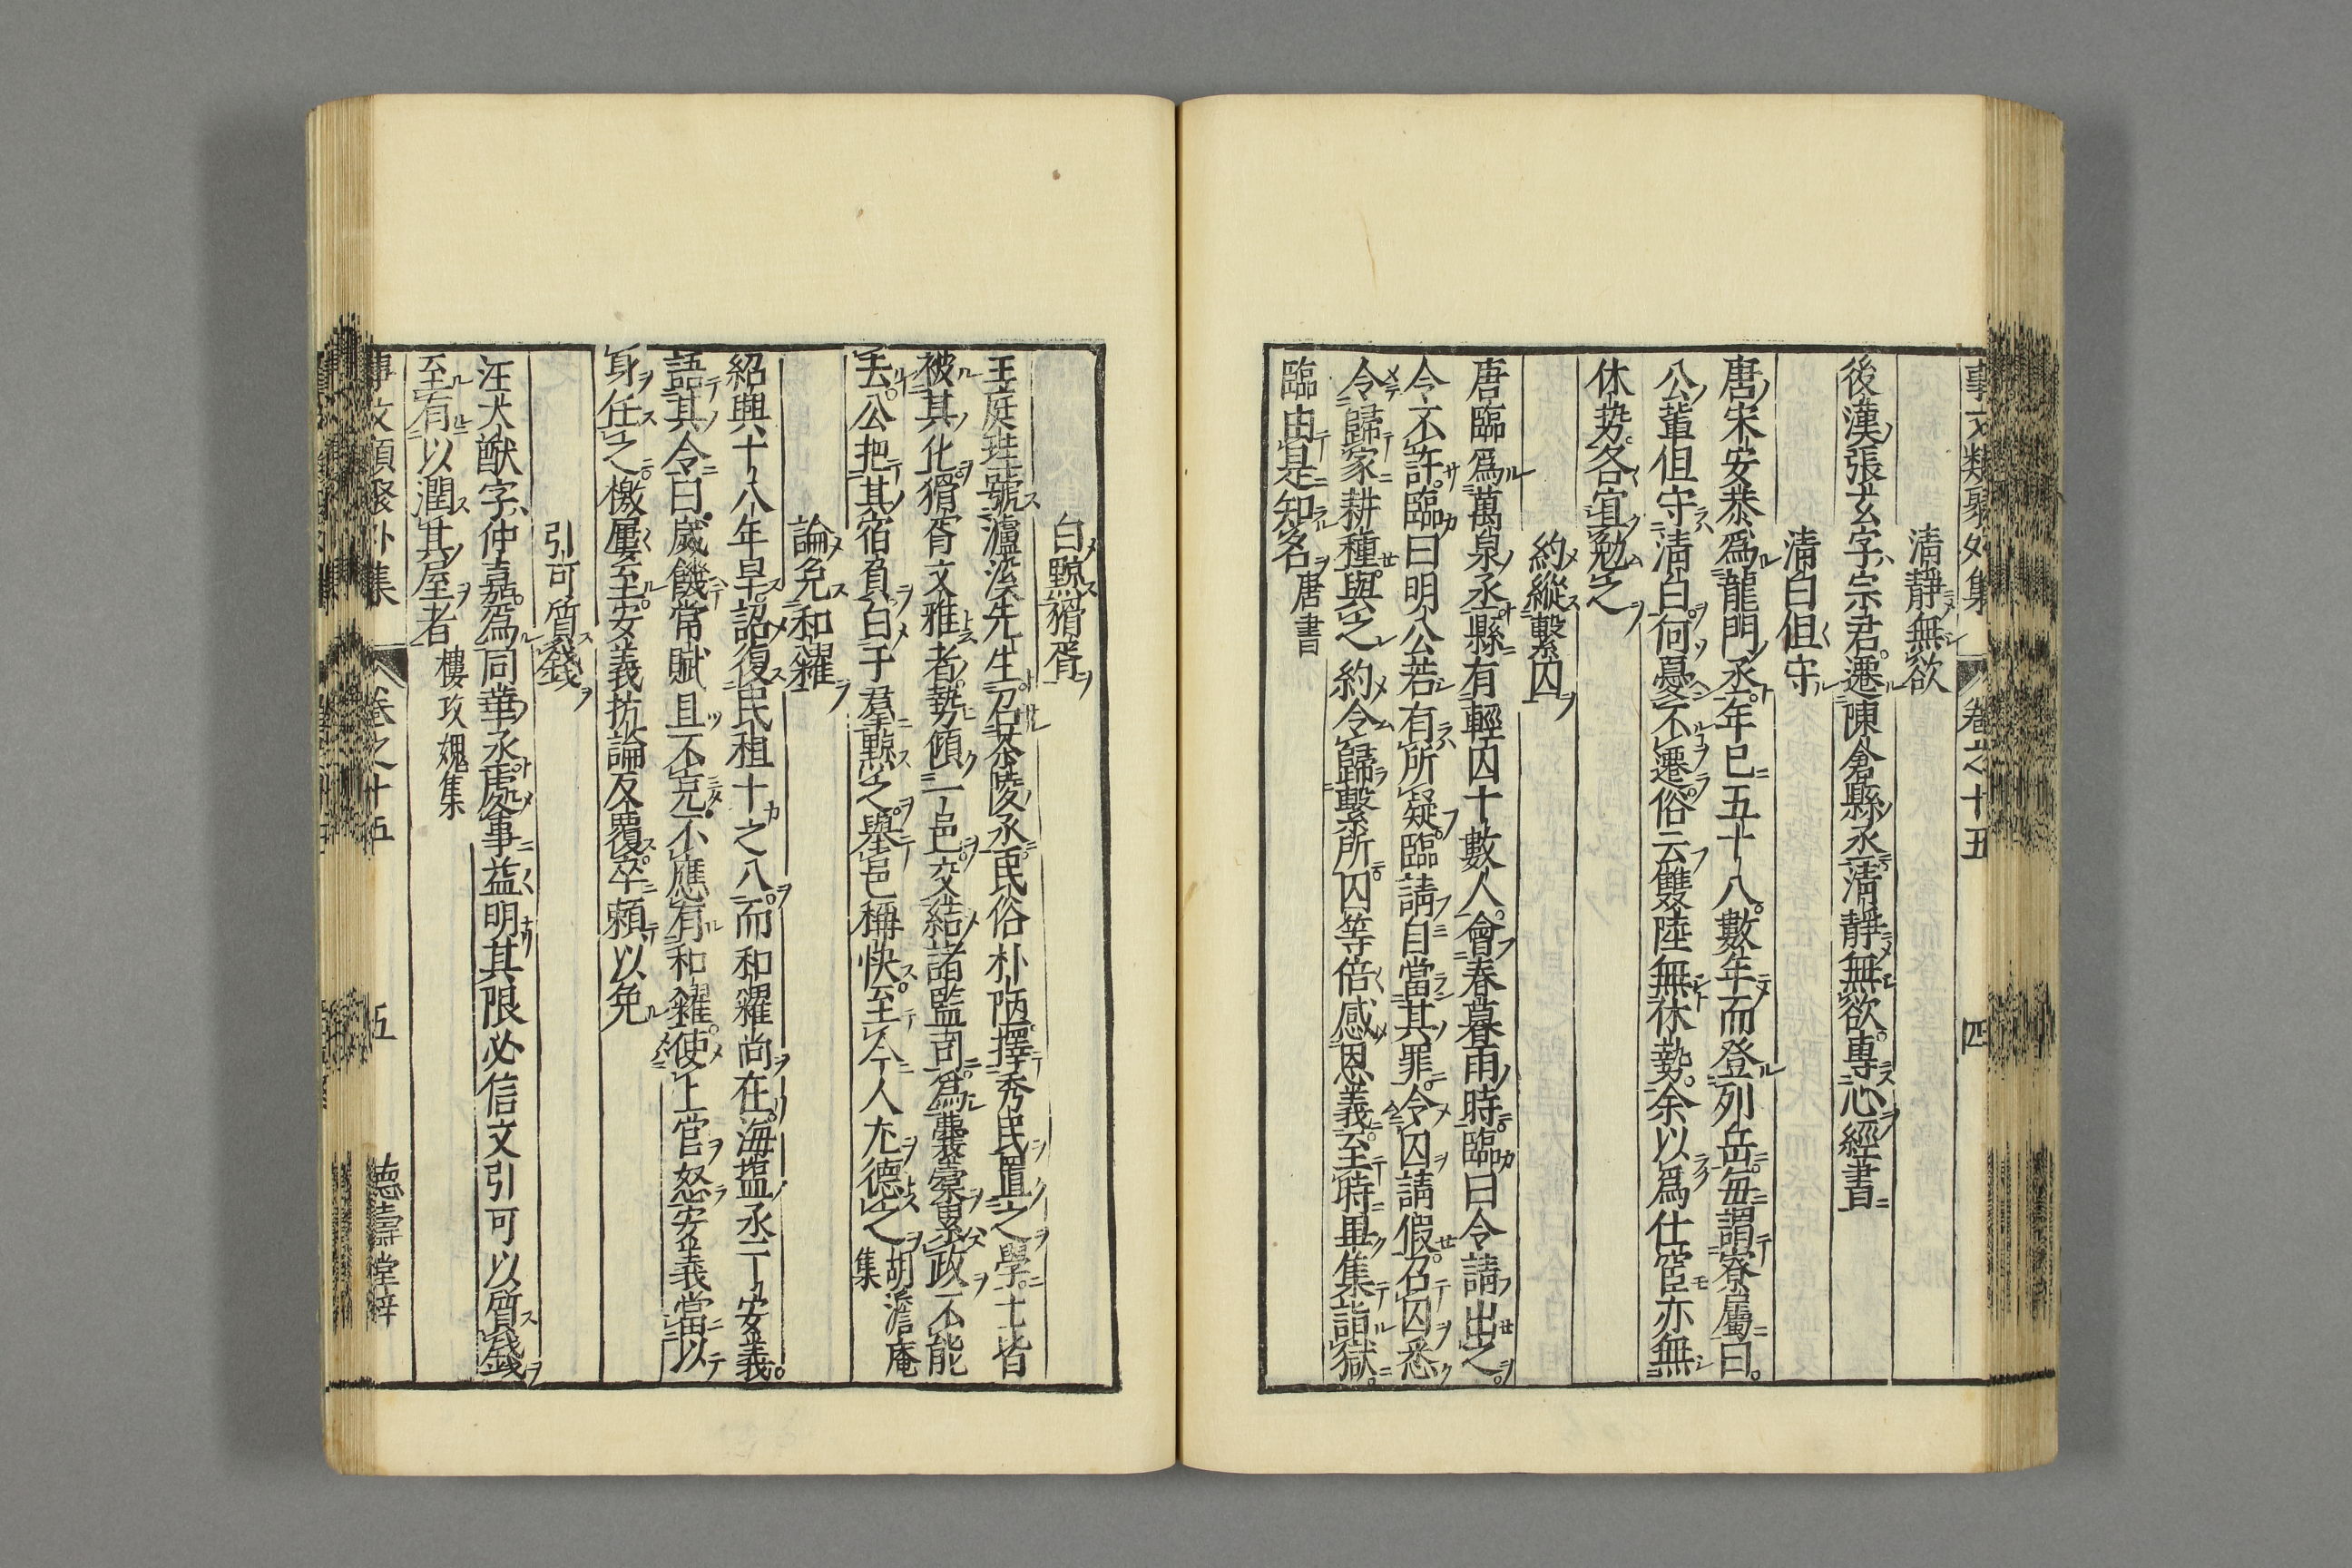 事文類聚外集 卷之十五 四
清靜無欲
後漢張玄字宗君遷陳倉縣丞清靜無欲專心經書
清白但守
唐宋安恭爲龍門丞年已五十八數年而登列岳每謂寮屬曰
公輩但守清白何憂不遷俗云雙陸無休勢余以爲仕宦亦無
休勢各宜勉之
約縱繫囚
唐臨爲萬泉丞縣有輕囚十數人會春暮雨時臨曰令請出之
令不許臨曰明公若有所疑臨請自當其罪令囚請假召囚悉
令歸家耕種與之約令歸繫所囚等倍感恩義至時畢集詣獄
臨由是知名 唐書
白黥猾胥
王庭珪號瀘溪先生召茶陵丞民俗朴陋擇秀民置之學士皆
被其化猾胥文雅者勢傾一邑交結諸監司爲囊橐累政不能
去公把其宿負白于羣黥之舉邑稱快至今人尤德之 胡澹庵集
論免和糴
紹興十八年旱詔復民租十之八而和糴尚在海塩丞丁安義
語其令曰歲饑常賦且不克不應有和糴使上官怒安義當以
身任之檄屢至安義抗論反覆卒頼以免
引可質錢
汪大猷字仲嘉爲同華丞處事益明其限必信文引可以質錢
至有以潤其屋者 樓攻媿集
事文類聚外集 卷之十五 五 德壽堂梓